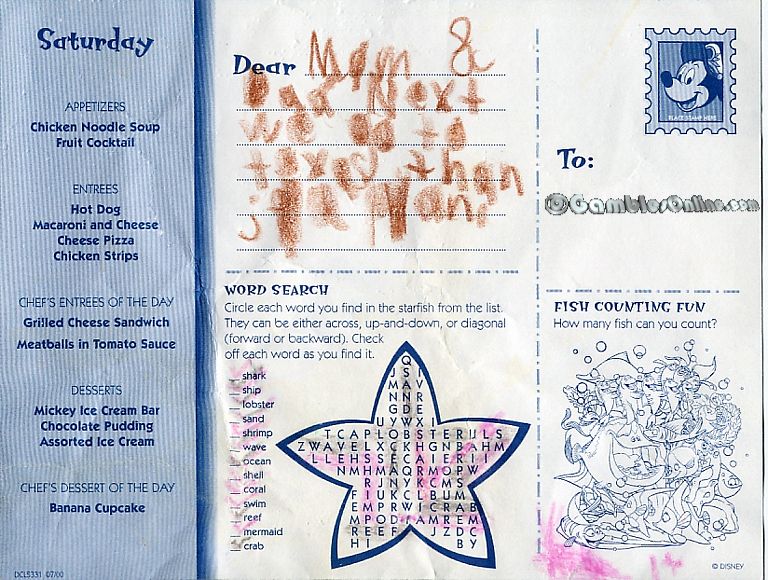 Saturday
APPETIZERS
Chicken Noodle Soup
Fruit Cocktail
ENTREES
Hot Dog
Macaroni and Cheese
Cheese Pizza
Chicken Strips
CHEF'S ENTREES OF THE DAY
Grilled Cheese Sandwich
Meatballs in Tomato Sauce
DESSERTS
Mickey Ice Cream Bar
Chocolate Pudding
Assorted Ice Cream
CHEF'S DESSERT OF THE DAY
Banana Cupcake
DCL5331 07/00
Dear Mom &
Dad Next
we go to
than
WORD SEARCH
Circle each word you find in the starfish from the list.
They can be either across, up-and-down, or diagonal
(forward or backward). Check
off each word as you find it.
shark
ship
lobster
sand
shrimp
wave
ocean
shell
coral
swim
reef
mermaid
crab
Q
J S I
M A V
N N R
G D E
U Y W X I
T C A P L O B S T E R I J L S
Z W A V E L X C K H G N B A H M
L L E H S S E C A I E R I I
N M H M A Q R M O P W
R J N Y K C M S
F I U K C L B U M
E M P R W I C R A B
M P O D I A M R E M
R E E F J Z D C
H I B Y
PLACE STAMP HERE
To:
©GamblesOnline.com
FISH COUNTING FUN
How many fish can you count?
© DISNEY